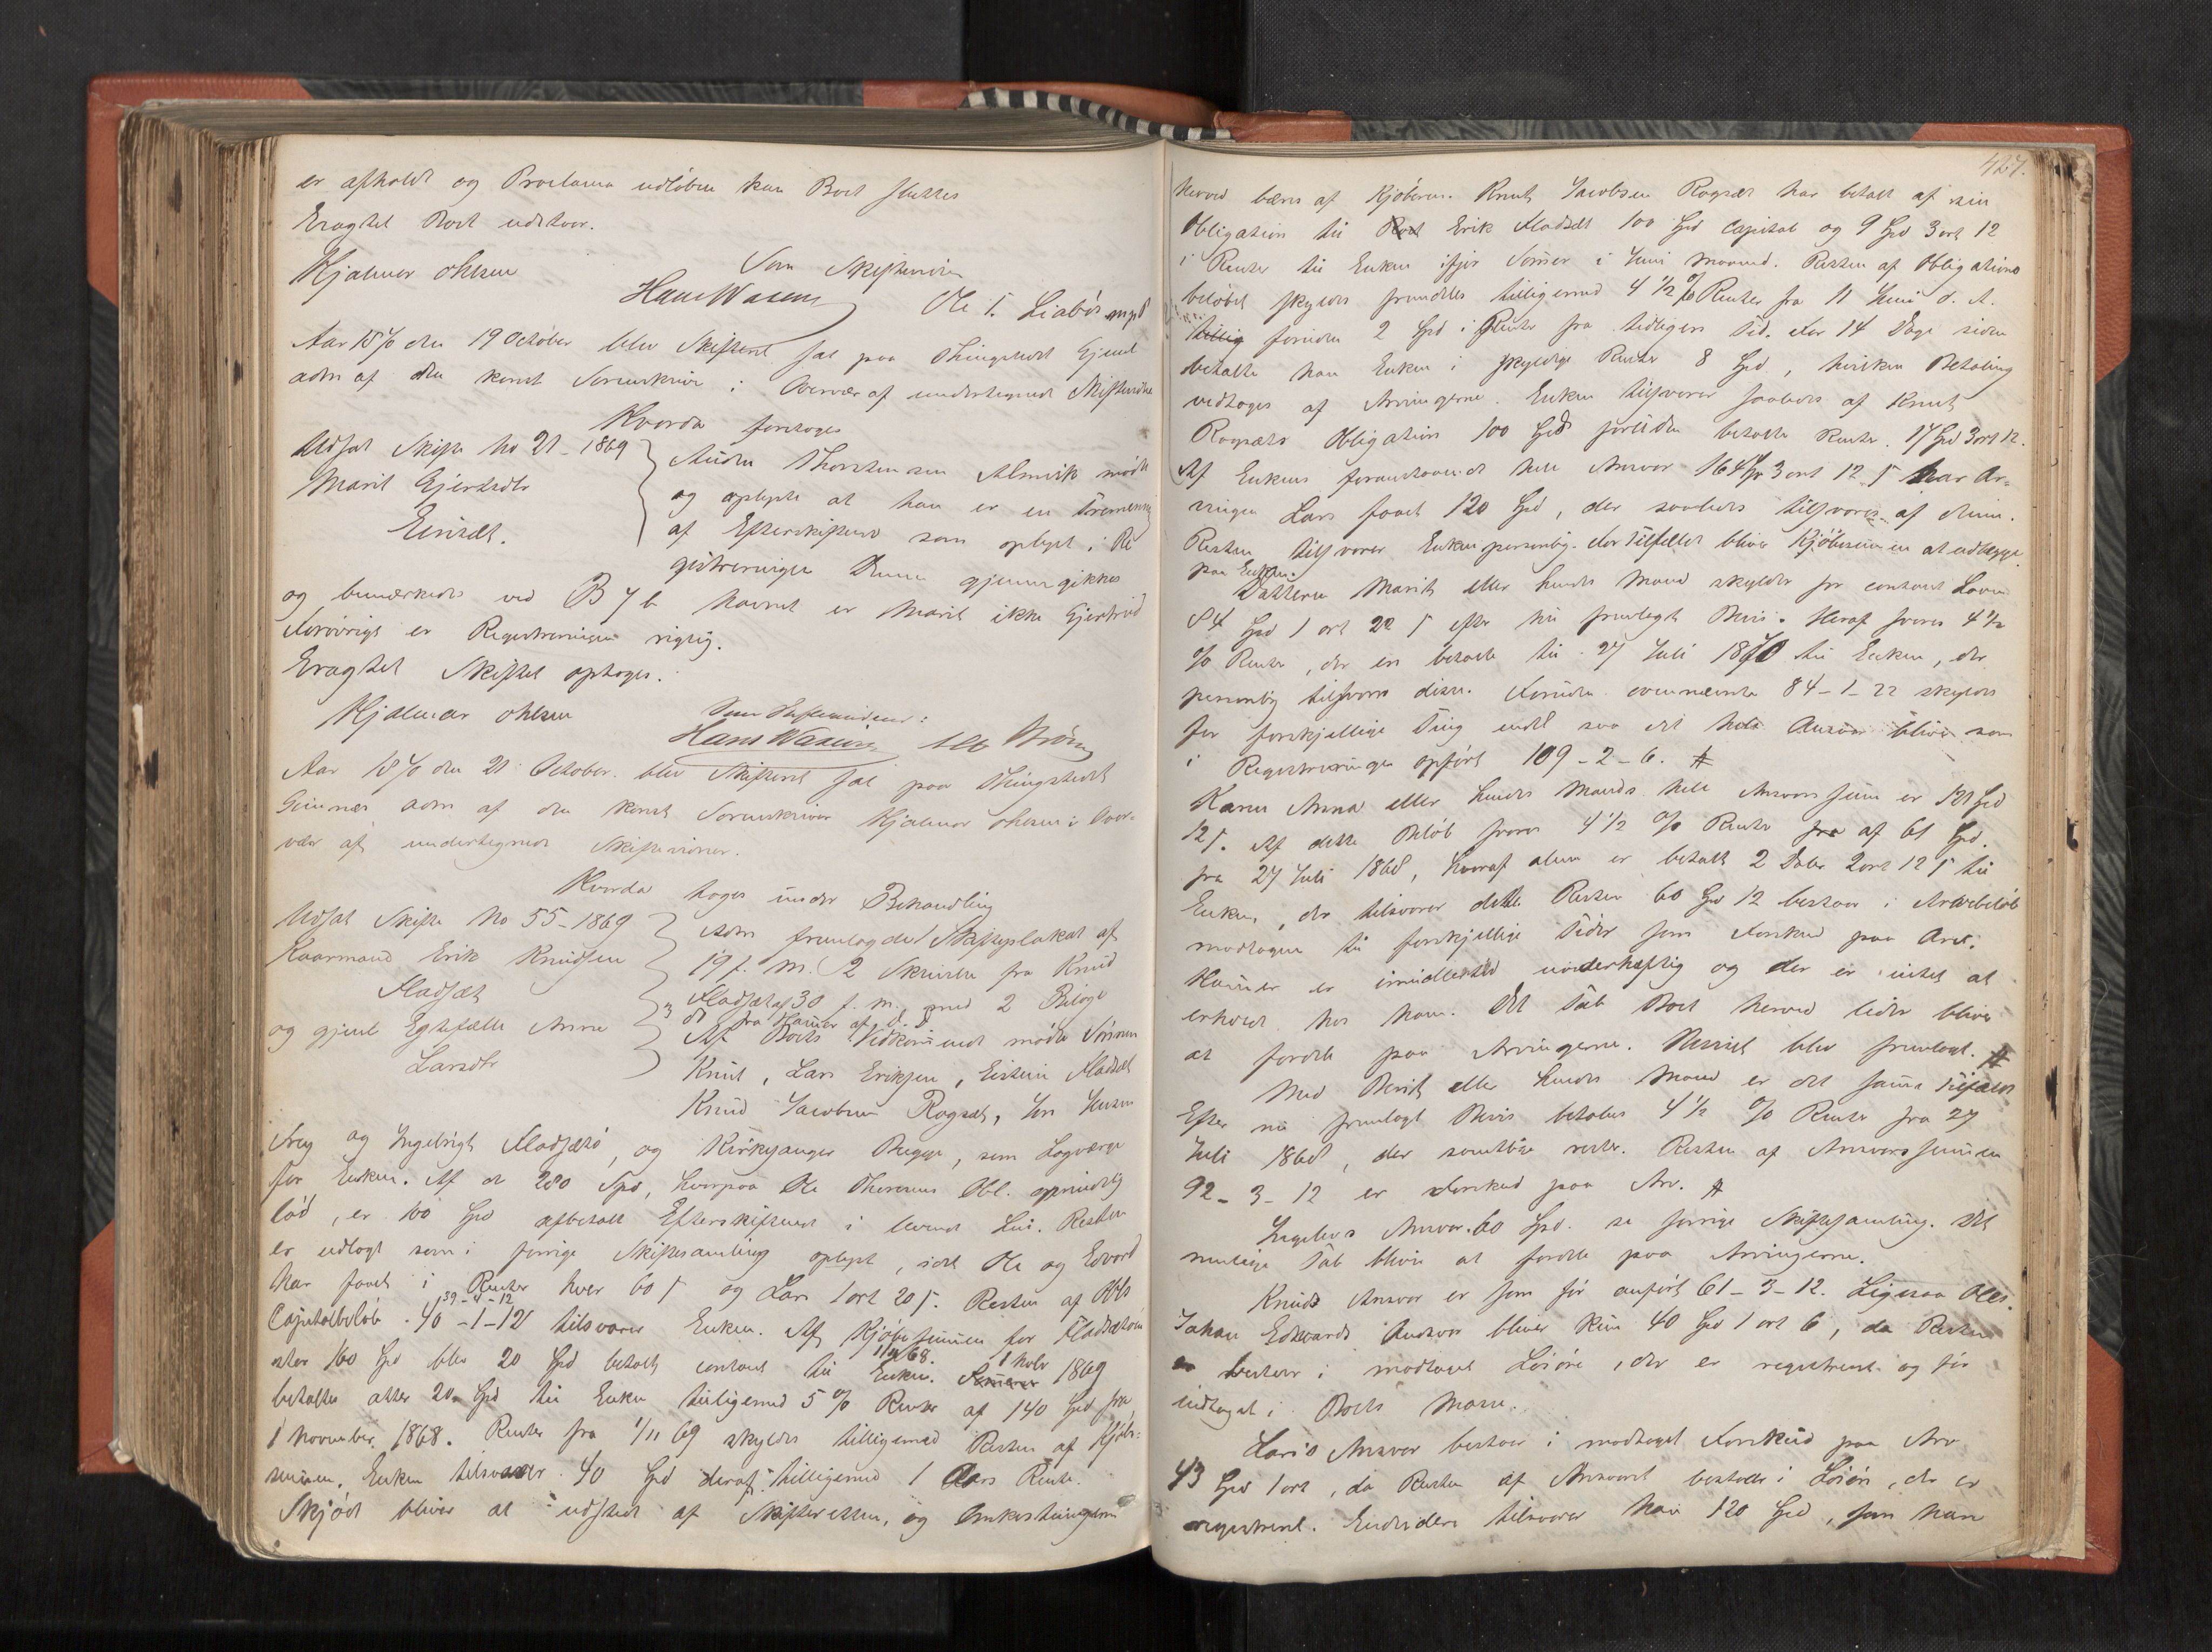 er afholdt og Proclama udløben kan Boet sluttes
Eragtet Boet udstaar.
Hjalmar Ohlsen
Som Skiftevidner
Hans Wasenig Ole T. Liabø mpd
Aar 1870 den 19 October blev Skifteret sat paa Thingstedet Gjeml
adm af den const Sorenskriver i Overvær af undertegnede Skiftevidner
Hvorda foretoges
Udsat Skifte No 21-1869
Marit Gjertsdtr
Anders Thorstensen Almvik mødte
og oplyste at han er en
af Efterskiftend som oplyst i Re
gistreringen Denne gjennemgikkes
og bemærkedes ved B 7 b Navnet er Marit ikke Gjertrud
Forøvrigt er Registreringen rigtig.
Eragtet Skiftet optoges.
Hjalmar Ohlsen
Som Skiftevidner:
Hans Wasenig
Aar 1870 den 21 October blev Skifteret sat paa Thingstedet
adm af den const Sorenskriver Hjalmar Ohlsen i Over-
vær af undertegnede Skiftevidner.
Hvorda toges under Behandling
Udsat Skifte No 55-1869
Kaarmand Erik Knudsen
Fladsæt
og gjenl Egtefælle Anne
Larsdtr
Adm fremlagde 1 Skifteplakat af
19 f. M. 2 Skrivelse fra Knud
Fladsæt af 30 f. m. med 2 Bilage
3 dt fra Hammer af d. d.
Af Boets Vedkommende mødte Sønnen
Knut, Lars Eriksen, Eistein Fladsæt
Knud Jacobsen Rogsæt, Jon Jensen
og Ingebrigt Fladsætø, og Kirkesanger Bugge, som Lagværge
for Enken. Af de 280 Spd, hvorpaa Ole Thoresens Obl. oprindelig
lød, er 100 Spd afbetalt Efterskiftend i levende Liv. Resten
er udlagt som i forrige Skiftesamling oplyst, idet Ole og Edvard
har faaet i Renter hver 60 s og Lars 1 ort 20 s. Resten af Obls
39-4-12
Capitalbeløb 40-1-12 tilsvarer Enken. Af Kjøbesummen for Fladsætøen
stor 160 Spd blev 20 Spd betalt contant til Enken 1/11 68. 1 Novbr 1869
betaltes atter 20 Spd til Enken tilligemed 5 % Renter af 140 Spd fra
1 November 1868. Renter fra 1/11 69 skyldes tilligemed Resten af Kjøbe-
summen. Enken tilsvarer 40 Spd deraf tilligemed 1 Aars Rente.
Skjøde bliver at udstede af Skifteretten, og Omkostningerne
427.
herved bæres af Kjøberen. Knut Jacobsen Rogsæt har betalt af sin
Obligation til Boet Erik Fladsæt 100 Spd Capital og 9 Spd 3 ort 12
i Renter til Enken ifjor Sommer i Juni Maaned. Resten af Obligations
beløbet skyldes fremdeles tilligemed 4 1/2 % Renter fra 11 Juni d. A.
tillig foruden 2 Spd i Renter fra tidligere Tid. For 14 Dage siden
betalte han Enken i skyldige Renter 8 Spd, hvilken Betaling
vedtoges af Arvingerne. Enken tilsvarer saaledes af Knut
Rogsæts Obligation 100 Spd foruden betalte Renter 17 Spd 3 ort 12.
Af Enkens foranstaaende hele Ansvar 164 Sp 3 ort 12 s har Ar-
vingen Lars faaet 120 Spd, der saaledes tilsvares af denne.
Resten tilsvarer Enken personlig. For Tilfældet bliver Kjøbesummen at udlægge
paa Enken.
Datteren Marit eller hendes Mand skylder for contant Laan
84 Spd 1 ort 22 s efter nu fremlagt Bevis. Heraf svares 4 1/2
% Renter, der er betalte til 27 Juli 1870 til Enken, der
personlig tilsvarer disse. Foruden ovennævnte 84-1-22 skyldes
for forskjellige Ting endel saa det hele Ansvar bliver som
i Registreringen opført 109-2-6. #
Karen Anna eller hendes Mands hele Ansvarssum er 121 Spd
12 s. Af dette Beløb svares 4 1/2 % Renter fra af 61 Spd.
fra 27 Juli 1868, hvoraf alene er betalt 2 Daler 2 ort 12 s til
Enken, der tilsvarer dette Resten 60 Spd 12 bestaar i Arvebeløb
modtagen til forskjellige Tider som Forskud paa Arv.
Hammer er imidlertid uvederhæftig og der er intet at
erholde hos ham. Det Tab Boet herved lider bliver
at fordele paa Arvingerne. Beviset blev fremlagt. #
Med Berit eller hendes Mand er det samme Tilfælde
Efter nu fremlagt Bevis betales 4 1/2 % Renter fra 27
Juli 1868, der samtlige rester. Resten af Ansvarssummen
92-3-12 er Forskud paa Arv. #
Ingeborgs Ansvar 60 Spd. se forrige Skiftesamling. Det
mulige Tab bliver at fordele paa Arvingerne.
Knuds Ansvar er som før anført 61-3-12. Ligesaa Oles.
Johan Edvards Ansvar bliver kun 40 Spd 1 ort 6, da Resten
bestaar i modtaget Løsøre, der er registreret og før
indtaget i Boets Masse.
Laris Ansvar bestaar i modtaget Forskud paa Arv
43 Spd 1 ort, da Resten af Ansvaret bestaar i Løsøre, der er
registreret. Endvidere tilsvarer han 120 Spd, som han